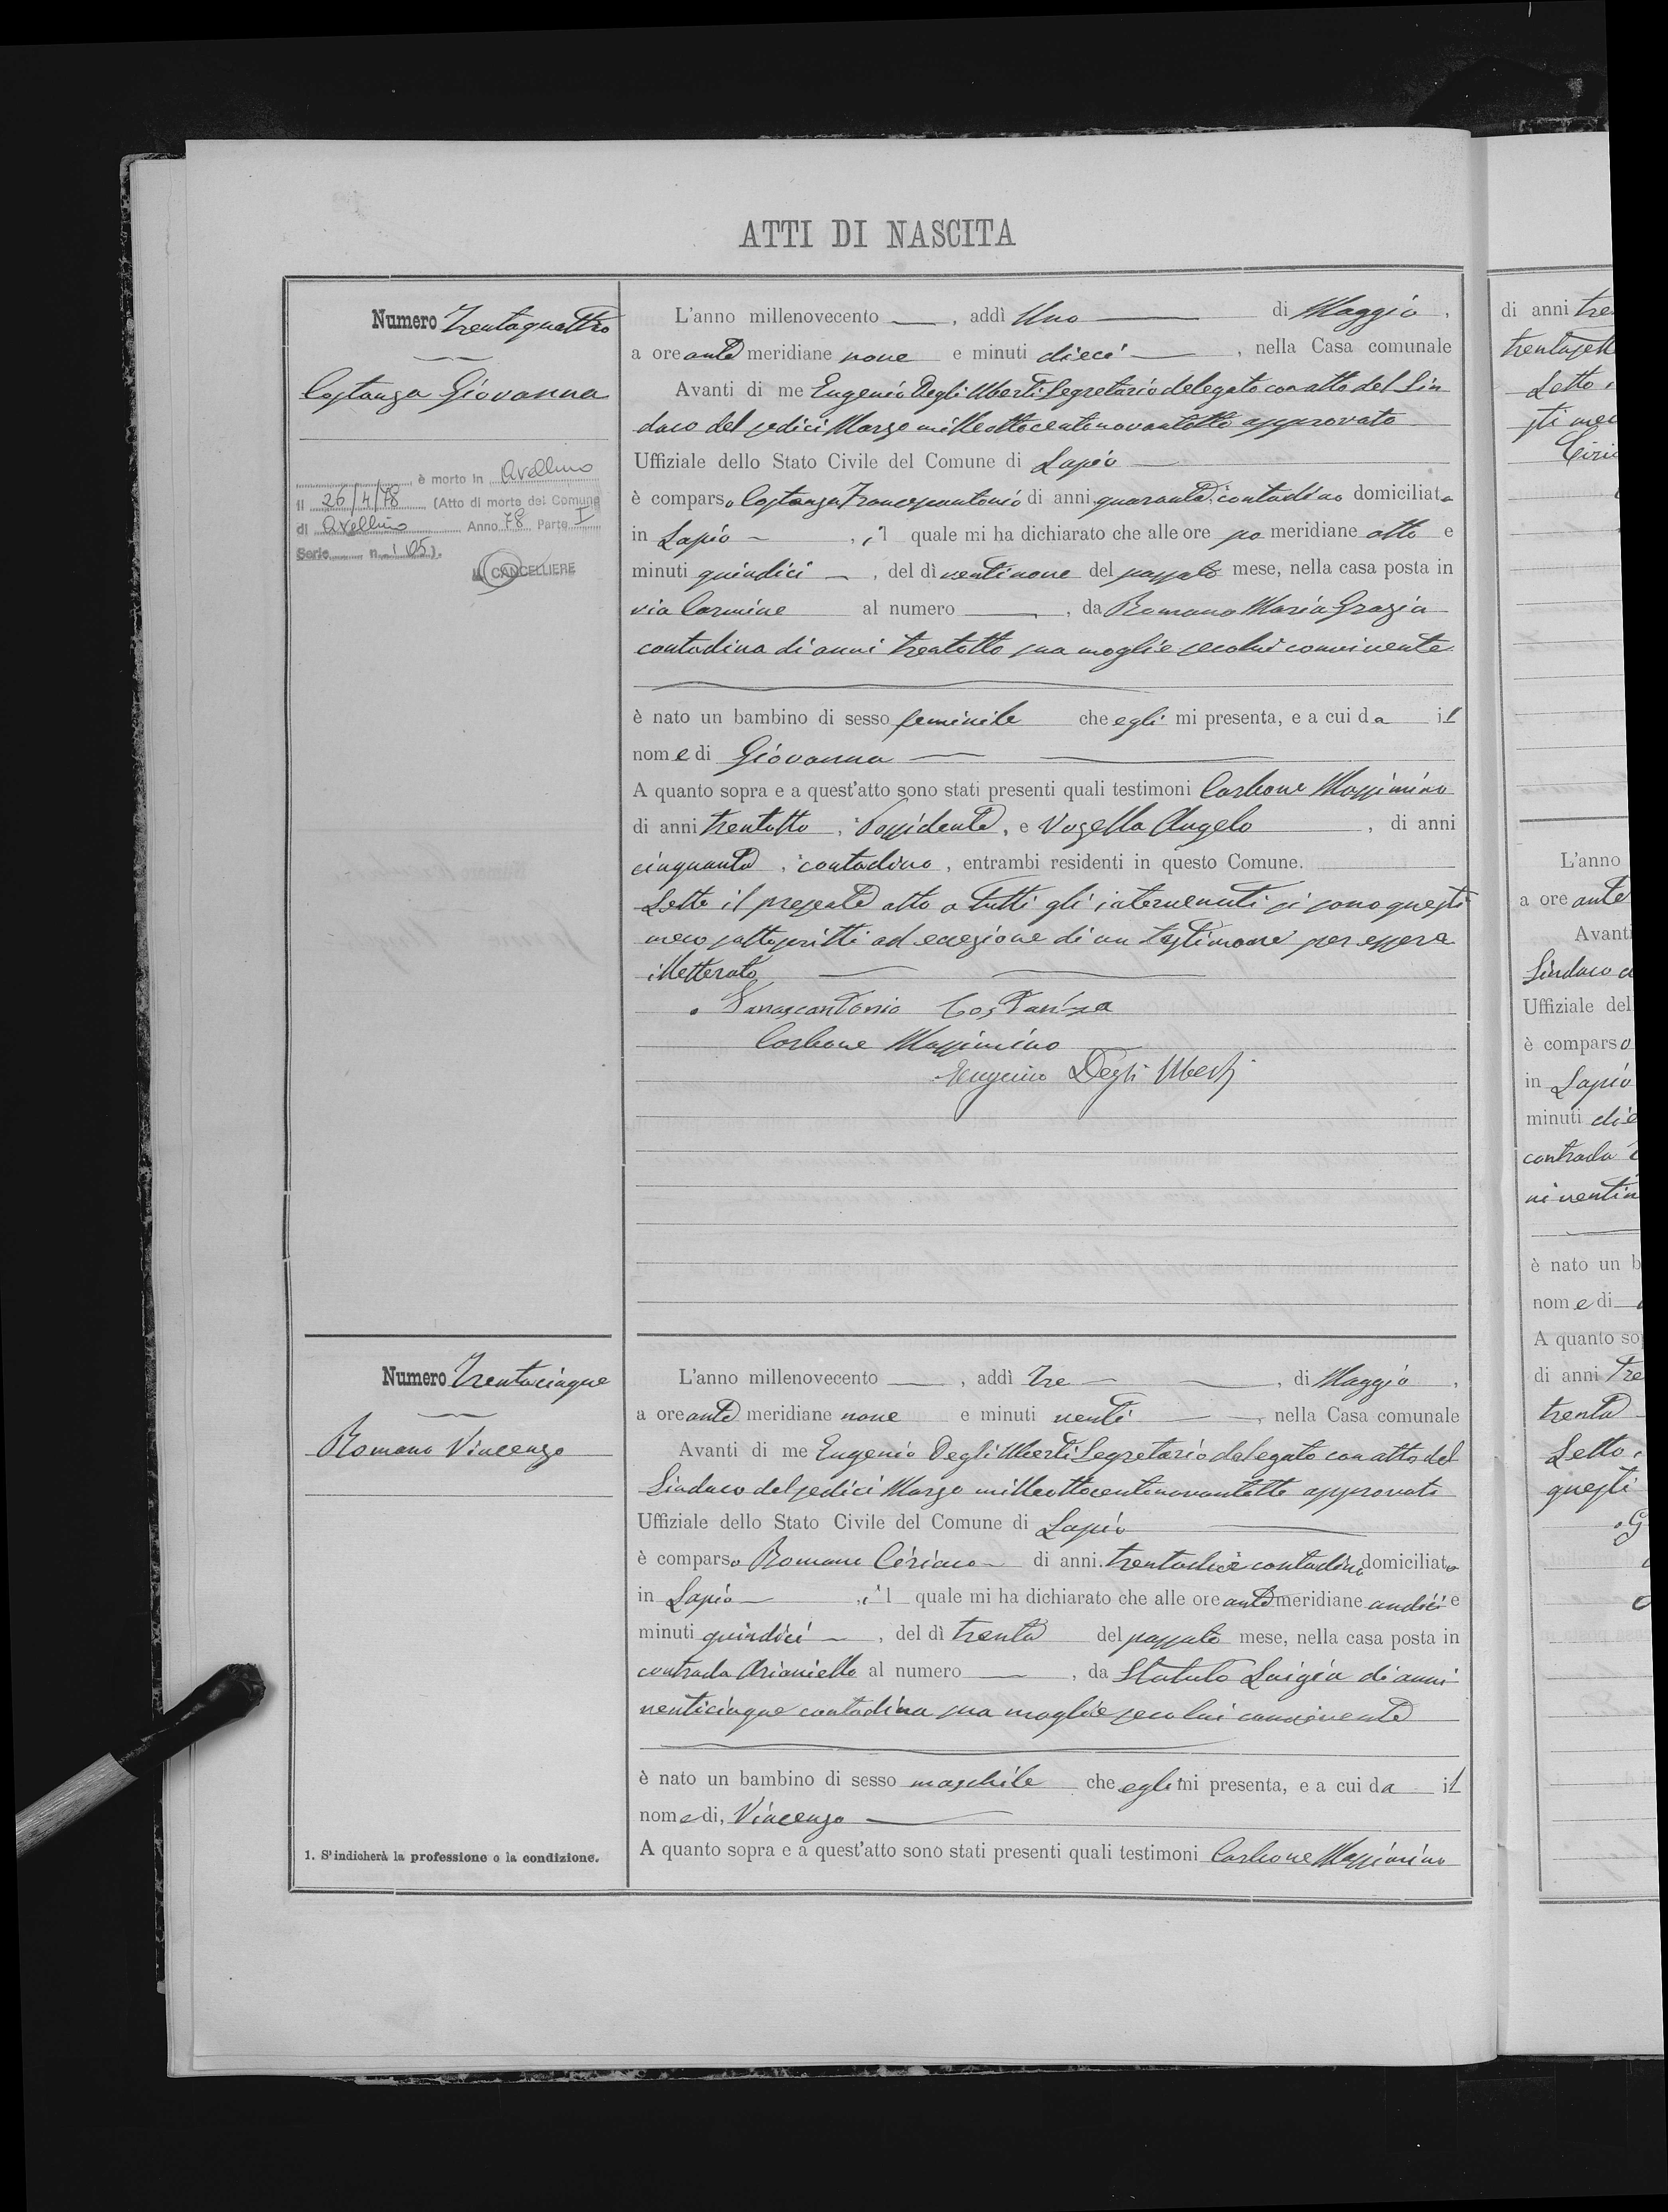 ATTI DI NASCITA
Numero Trentaquattro
Costanza Giovanna
è morto in Avellino
il 26/4/78 (Atto di morte del Comune
di Avellino Anno 78 Parte I
Serie n. 105).
IL CANCELLIERE
L'anno millenovecento —, addì Uno — di Maggio,
a ore ante meridiane nove e minuti dieci —, nella Casa comunale
Avanti di me Eugenio Degli Uberti Segretario delegato con atto del Sin
daco del sedici Marzo milleottocentonovantotto approvato
Uffiziale dello Stato Civile del Comune di Lapio —
è comparso Costanza Francescantonio di anni quaranta, contadino domiciliato
in Lapio —, il quale mi ha dichiarato che alle ore po meridiane otto e
minuti quindici —, del dì ventinove del passato mese, nella casa posta in
via Carmine al numero —, da Romano Maria Grazia
contadina di anni trentotto sua moglie secolui convivente
è nato un bambino di sesso feminile che egli mi presenta, e a cui da il
nome di Giovanna —
A quanto sopra e a quest'atto sono stati presenti quali testimoni Carbone Massimino
di anni trentotto, Possidente, e Vozella Angelo, di anni
cinquanta, contadino, entrambi residenti in questo Comune.
Letto il presente atto a tutti gli intervenuti si sono questi
meco sottoscritti ad eccezione di un testimone per essere
illetterato
Francescantonio Costanza
Carbone Massimino
Eugenio Degli Uberti
Numero Trentacinque
Romano Vincenzo
L'anno millenovecento —, addì tre — —, di Maggio,
a ore ante meridiane nove e minuti venti —, nella Casa comunale
Avanti di me Eugenio Degli Uberti Segretario delegato con atto del
Sindaco del sedici Marzo milleottocentonovantotto approvato
Uffiziale dello Stato Civile del Comune di Lapio
è comparso Romano Ciriaco di anni trentadue contadino domiciliato
in Lapio —, il quale mi ha dichiarato che alle ore ante meridiane undici e
minuti quindici —, del dì trenta del passato mese, nella casa posta in
contrada Arianiello al numero —, da Statuto Luigia di anni
venticinque contadina sua moglie seco lui convivente
è nato un bambino di sesso maschile che egli mi presenta, e a cui da il
nome di, Vincenzo —
A quanto sopra e a quest'atto sono stati presenti quali testimoni Carbone Massimino
1. S'indicherà la professione o la condizione.
di anni tre
trentasett
Letto
sti mec
Ciri
L'anno
a ore ante
Avanti
Sindaco
Uffiziale del
è comparso
in Lapio
minuti die
contrada
ni ventin
è nato un b
nome di
A quanto so
di anni Tre
trenta
Letto
questi